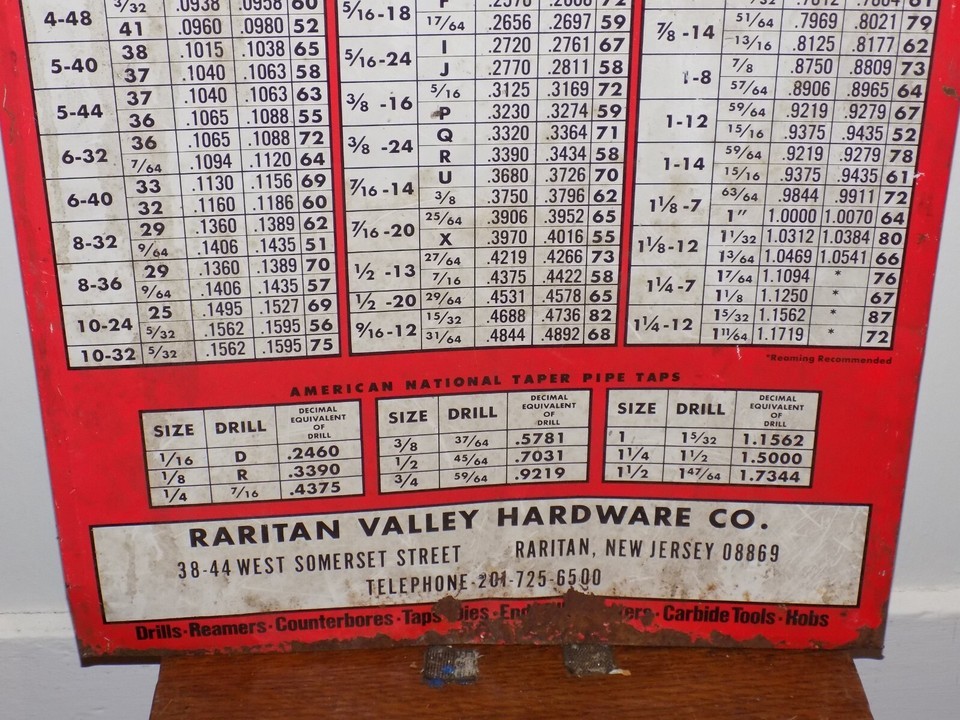 4-48 3/32 .0938 .0958 60
41 .0960 .0980 52
5-40 38 .1015 .1038 65
37 .1040 .1063 58
5-44 37 .1040 .1063 63
36 .1065 .1088 55
6-32 36 .1065 .1088 72
7/64 .1094 .1120 64
6-40 33 .1130 .1156 69
32 .1160 .1186 60
8-32 29 .1360 .1389 62
9/64 .1406 .1435 51
8-36 29 .1360 .1389 70
9/64 .1406 .1435 57
10-24 25 .1495 .1527 69
5/32 .1562 .1595 56
10-32 5/32 .1562 .1595 75
5/16-18 F .2570 72
17/64 .2656 .2697 59
5/16-24 I .2720 .2761 67
J .2770 .2811 58
3/8 -16 5/16 .3125 .3169 72
P .3230 .3274 59
3/8 -24 Q .3320 .3364 71
R .3390 .3434 58
7/16 -14 U .3680 .3726 70
3/8 .3750 .3796 62
7/16 -20 25/64 .3906 .3952 65
X .3970 .4016 55
1/2 -13 27/64 .4219 .4266 73
7/16 .4375 .4422 58
1/2 -20 29/64 .4531 .4578 65
9/16-12 15/32 .4688 .4736 82
31/64 .4844 .4892 68
7/8 -14 51/64 .7969 .8021 79
13/16 .8125 .8177 62
1-8 7/8 .8750 .8809 73
57/64 .8906 .8965 64
1-12 59/64 .9219 .9279 67
15/16 .9375 .9435 52
1-14 59/64 .9219 .9279 78
15/16 .9375 .9435 61
1 1/8 -7 63/64 .9844 .9911 72
1" 1.0000 1.0070 64
1 1/8-12 1 1/32 1.0312 1.0384 80
1 3/64 1.0469 1.0541 66
1 1/4 -7 1 7/64 1.1094 * 76
1 1/8 1.1250 * 67
1 1/4 -12 1 5/32 1.1562 * 87
1 11/64 1.1719 * 72
*Reaming Recommended
AMERICAN NATIONAL TAPER PIPE TAPS
SIZE DRILL DECIMAL EQUIVALENT OF DRILL
1/16 D .2460
1/8 R .3390
1/4 7/16 .4375
SIZE DRILL DECIMAL EQUIVALENT OF DRILL
3/8 37/64 .5781
1/2 45/64 .7031
3/4 59/64 .9219
SIZE DRILL DECIMAL EQUIVALENT OF DRILL
1 1 5/32 1.1562
1 1/4 1 1/2 1.5000
1 1/2 1 47/64 1.7344
RARITAN VALLEY HARDWARE CO.
38-44 WEST SOMERSET STREET RARITAN, NEW JERSEY 08869
TELEPHONE-201-725-6500
Drills·Reamers·Counterbores·Taps·Dies· Carbide Tools·Hobs